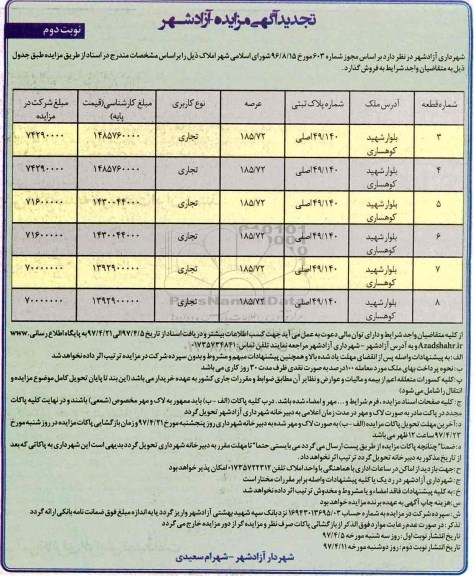 تجدیدآگهی مزایده آزادشهر
نوبت دوم
شهرداری آزادشهر در نظر دارد بر اساس مجوز شماره ۶۰۳ مورخ ۹۶/۸/۱۵ شورای اسلامی شهر املاک ذیل را براساس مشخصات مندرج در اسناد از طریق مزایده طبق جدول
ذیل به متقاضیان واجد شرایط به فروش گذارد.
شماره قطعه آدرس ملک شماره پلاک ثبتی عرصه نوع کاربری مبلغ کارشناسی (قیمت پایه) مبلغ شرکت در مزایده
۳ بلوار شهید کوهساری ۴۹/۱۴۰ اصلی ۱۸۵/۷۲ تجاری ۱۴۸۵۷۶۰۰۰۰ ۷۴۲۹۰۰۰۰
۴ بلوار شهید کوهساری ۴۹/۱۴۰ اصلی ۱۸۵/۷۲ تجاری ۱۴۸۵۷۶۰۰۰۰ ۷۴۲۹۰۰۰۰
۵ بلوار شهید کوهساری ۴۹/۱۴۰ اصلی ۱۸۵/۷۲ تجاری ۱۴۳۰۰۴۴۰۰۰ ۷۱۶۰۰۰۰۰
۶ بلوار شهید کوهساری ۴۹/۱۴۰ اصلی ۱۸۵/۷۲ تجاری ۱۴۳۰۰۴۴۰۰۰ ۷۱۶۰۰۰۰۰
۷ بلوار شهید کوهساری ۴۹/۱۴۰ اصلی ۱۸۵/۷۲ تجاری ۱۳۹۲۹۰۰۰۰۰ ۷۰۰۰۰۰۰۰
۸ بلوار شهید کوهساری ۴۹/۱۴۰ اصلی ۱۸۵/۷۲ تجاری ۱۳۹۲۹۰۰۰۰۰ ۷۰۰۰۰۰۰۰
از کلیه متقاضیان واجد شرایط و دارای توان مالی دعوت به عمل می آید جهت کسب اطلاعات بیشتر و دریافت اسناد از تاریخ ۹۷/۴/۵ الی ۹۷/۴/۲۱ به پایگاه اطلاع رسانی www.
Azadshahr.ir و به آدرس آزادشهر - شهرداری آزادشهر مراجعه نمایند تلفن تماس: ۰۱۷۳۵۷۳۴۸۴۱
الف: به پیشنهادات واصله پس از انقضای مهلت یاد شده بالا و همچنین پیشنهادات مبهم و مشروط و بدون سپرده شرکت در مزایده ترتیب اثر داده نخواهد شد
ب: نحوه پرداخت بهای ملک مورد معامله ۱۰۰ درصد به صورت نقدی ظرف مدت ۳۰ روز کاری می باشد
پ: کلیه کسورات متعلقه اعم از بیمه و مالیات و عوارض و نظایر آن مطابق ضوابط و مقررات جاری کشور به عهده خریدار می باشد (این بند تا پایان تحویل کامل موضوع مزایده و
انتقال را شامل می شود)
ج: کلیه صفحات اسناد مزایده، فرم شرایط و ... مهر و امضاء شده باشد. درب کلیه پاکات (الف - ب) باید ممهور به لاک و مهر مخصوص (شمعی) باشند و در نهایت کلیه پاکات
مجدد در پاکت مادر به صورت لاک و مهر در مدت زمان اعلامی به دبیرخانه شهرداری آزادشهر تحویل گردد
د: آخرین مهلت تحویل پاکات مزایده (الف - ب) به صورت لاک و مهر شده به دبیرخانه شهرداری روز پنجشنبه مورخ ۹۷/۴/۲۱ و زمان بازگشایی پاکات مزایده در روز شنبه مورخ
۹۷/۴/۲۳ ساعت ۱۲ ظهر می باشد
ه: ضمناً چنانچه پاکات مزایده از طریق پست ارسال می گردد می بایستی حتماً تا مهلت مقرر به دبیرخانه شهرداری تحویل گردد بدیهی است این شهرداری به پاکاتی که بعد
از تاریخ مذکور به دبیرخانه تحویل گردد ترتیب اثر نخواهد داد.
ح: جهت بازدید از املاک در ساعات اداری با هماهنگی با واحد املاک تلفن ۰۱۷۳۵۷۲۲۳۱۲ امکان پذیر خواهد بود
چ: شهرداری آزادشهر در رد یک یا کلیه پیشنهادات واصله برابر مقررات مختار است
خ: به کلیه پیشنهادات فاقد امضاء و یا مشروط و مخدوش ترتیب اثر داده نخواهد شد
س: هزینه چاپ آگهی به عهده برنده مزایده می باشد
تذکر: در صورت عدم رعایت موارد فوق الذکر از بازگشائی پاکات صرف نظر و مزایده گر از دور مزایده خارج می گردد
تاریخ انتشار نوبت اول: روز سه شنبه مورخه ۹۷/۴/۵
تاریخ انتشار نوبت دوم: روز دوشنبه مورخه ۹۷/۴/۱۱
شهردار آزادشهر - شهرام سعیدی